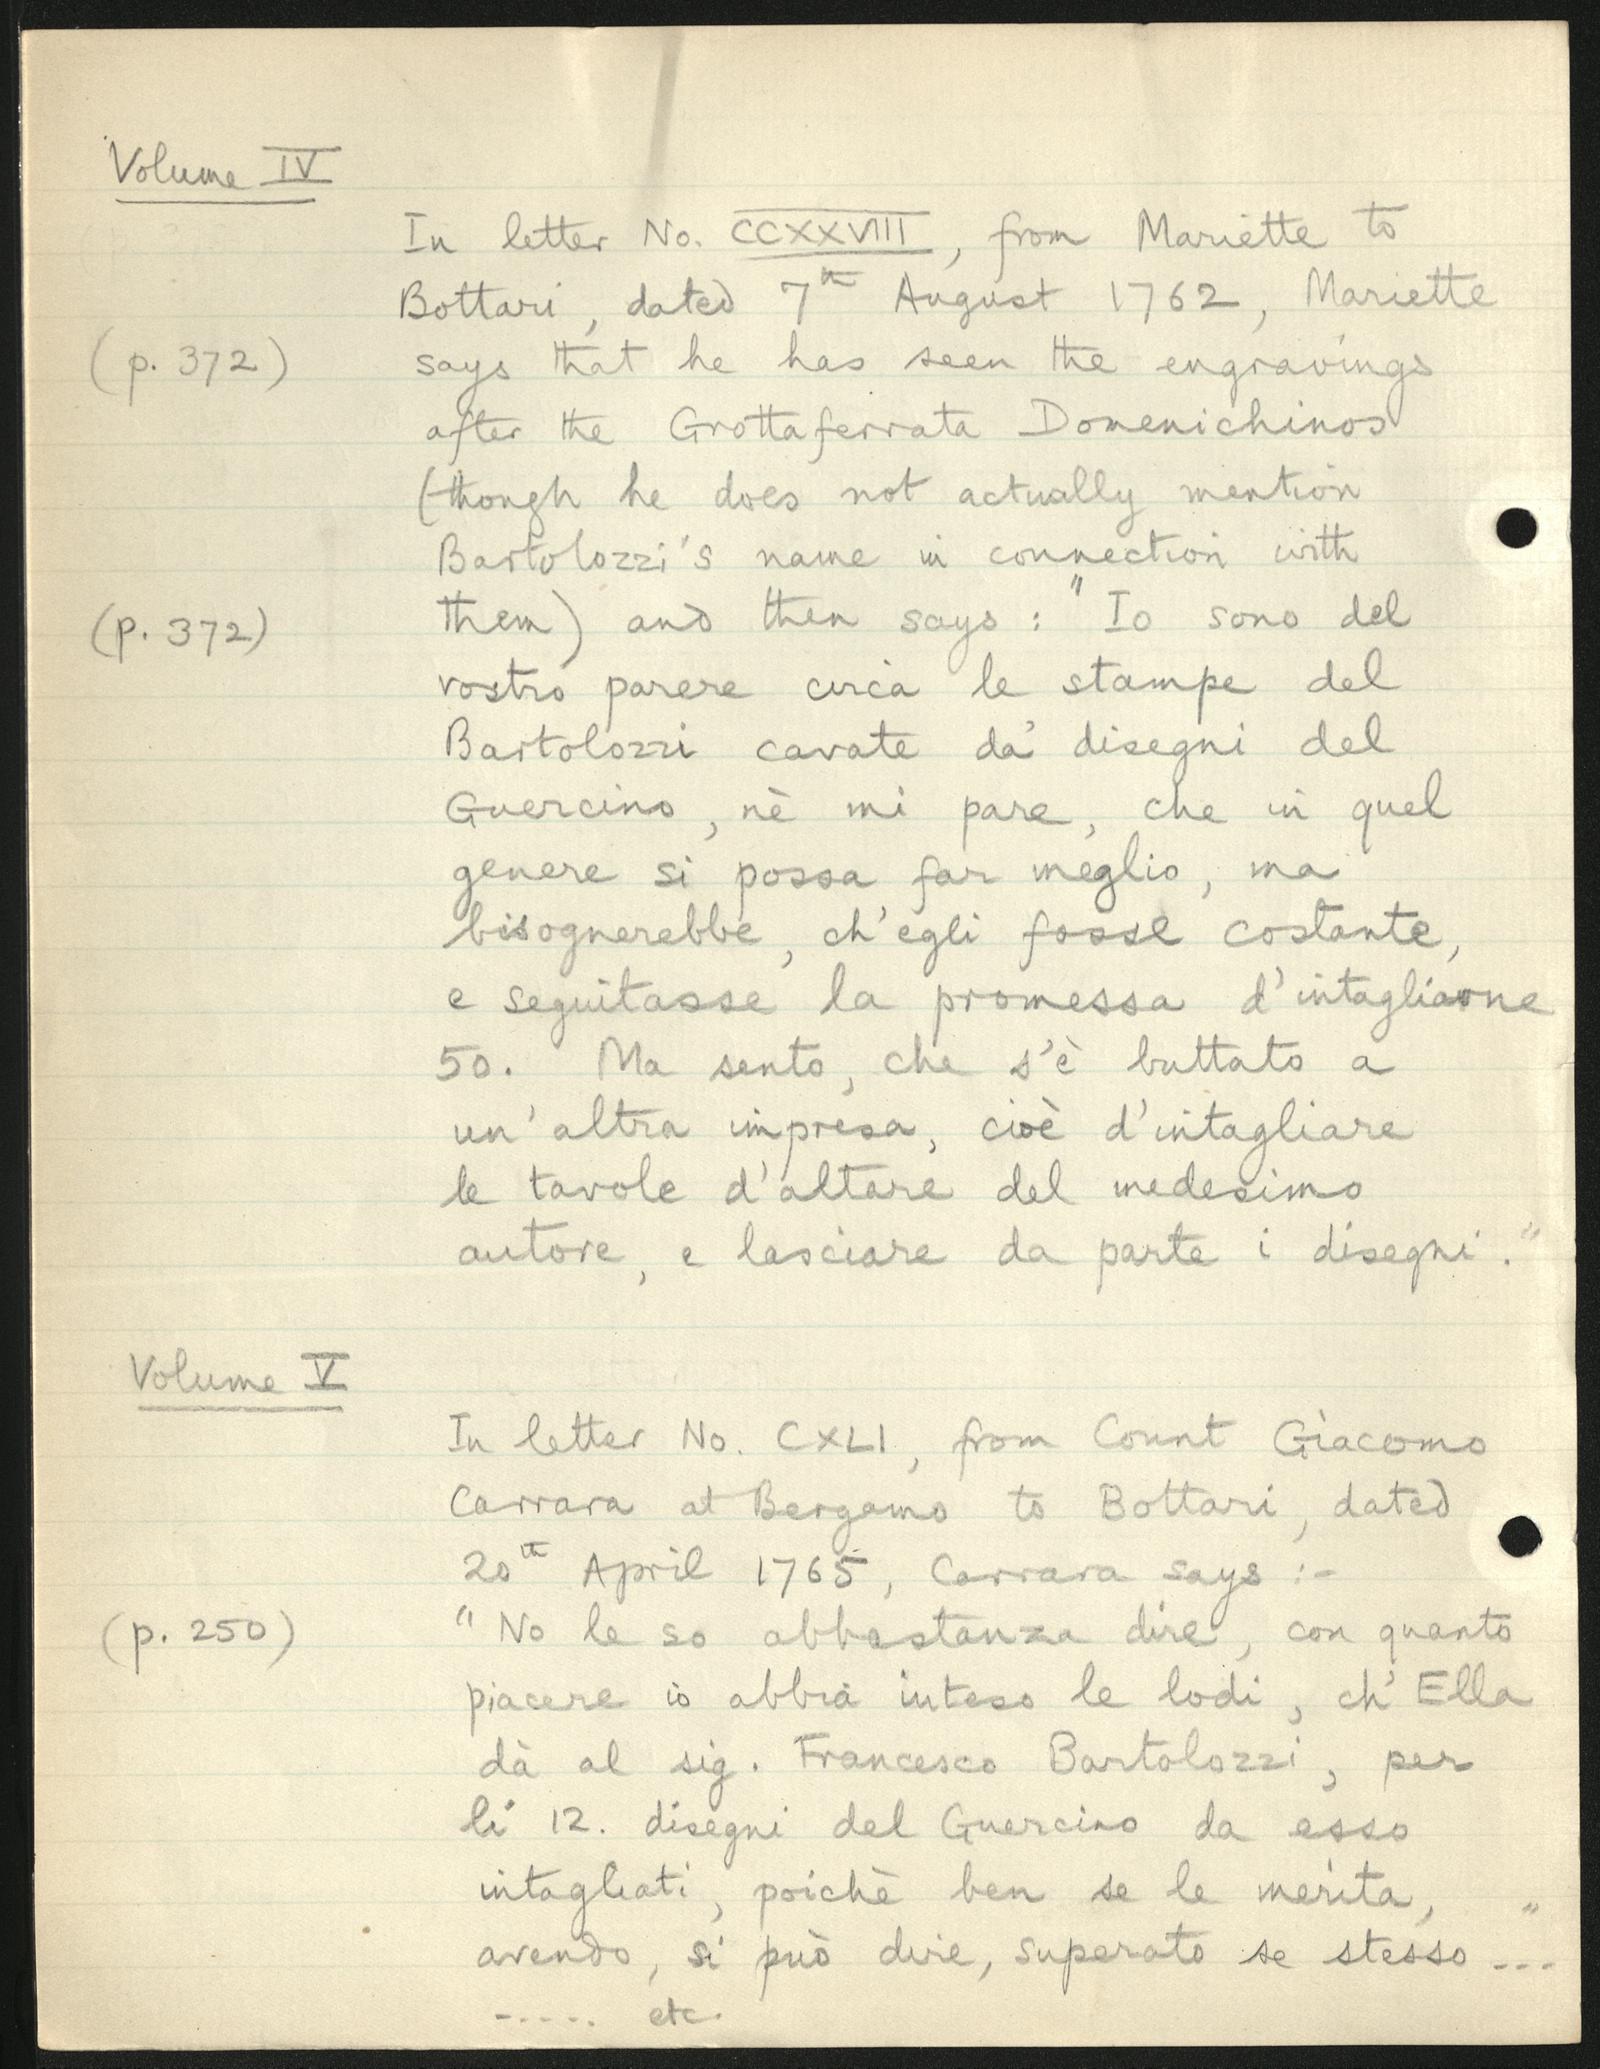 Volume IV
In letter No. CCXXVIII, from Mariette to
Bottari, dated 7th August 1762, Mariette
(p. 372) says that he has seen the engravings
after the Grottaferrata Domenichinos
(though he does not actually mention
Bartolozzi's name in connection with
(p. 372) them) and then says: "Io sono del
vostro parere circa le stampe del
Bartolozzi cavate da' disegni del
Guercino, nè mi pare, che in quel
genere si possa far meglio, ma
bisognerebbe, ch'egli fosse costante,
e seguitasse la promessa d'intagliarne
50. Ma sento, che s'è buttato a
un'altra impresa, cioè d'intagliare
le tavole d'altare del medesimo
autore, e lasciare da parte i disegni."
Volume V
In letter No. CXLI, from Count Giacomo
Carrara at Bergamo to Bottari, dated
20th April 1765, Carrara says :-
(p. 250) "No le so abbastanza dire, con quanto
piacere io abbia inteso le lodi, ch'Ella
dà al sig. Francesco Bartolozzi, per
li 12. disegni del Guercino da esso
intagliati, poichè ben se le merita,
avendo, si può dire, superato se stesso ..."
..... etc.